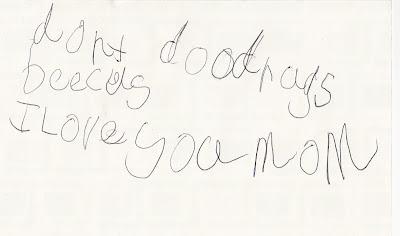 dont doodrugs
beecus
I Love you mom